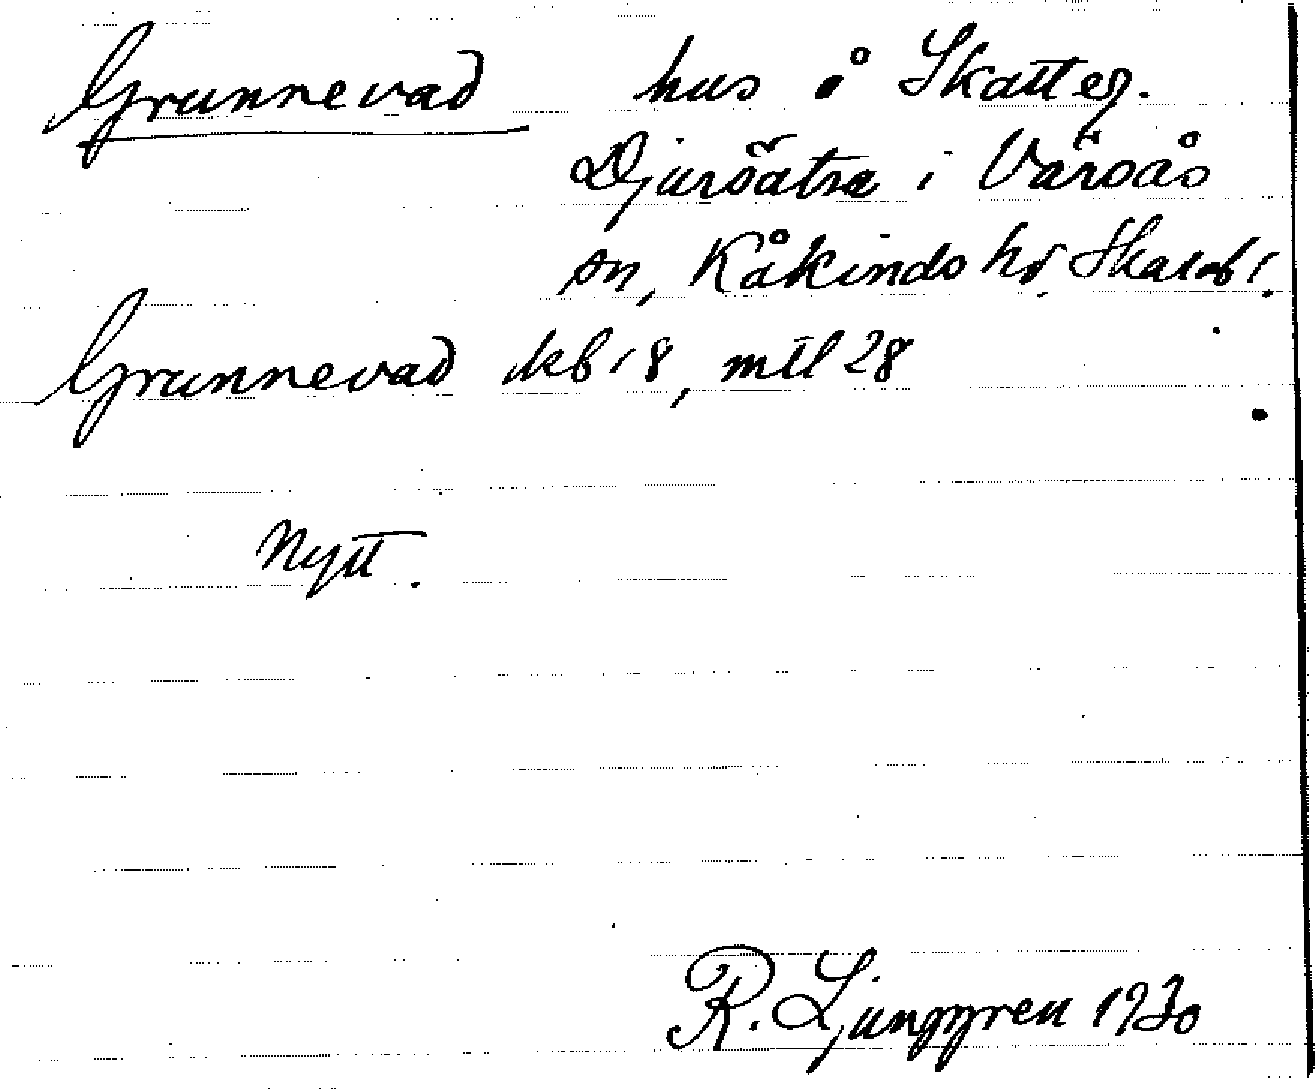 Grunnevad hus å Skatteg.
Djursätra i Värsås
sn, Kåkinds hd. Skarab l.
Grunnevad dkb 18, mtl 28
Nytt.
R. Ljunggren 1930